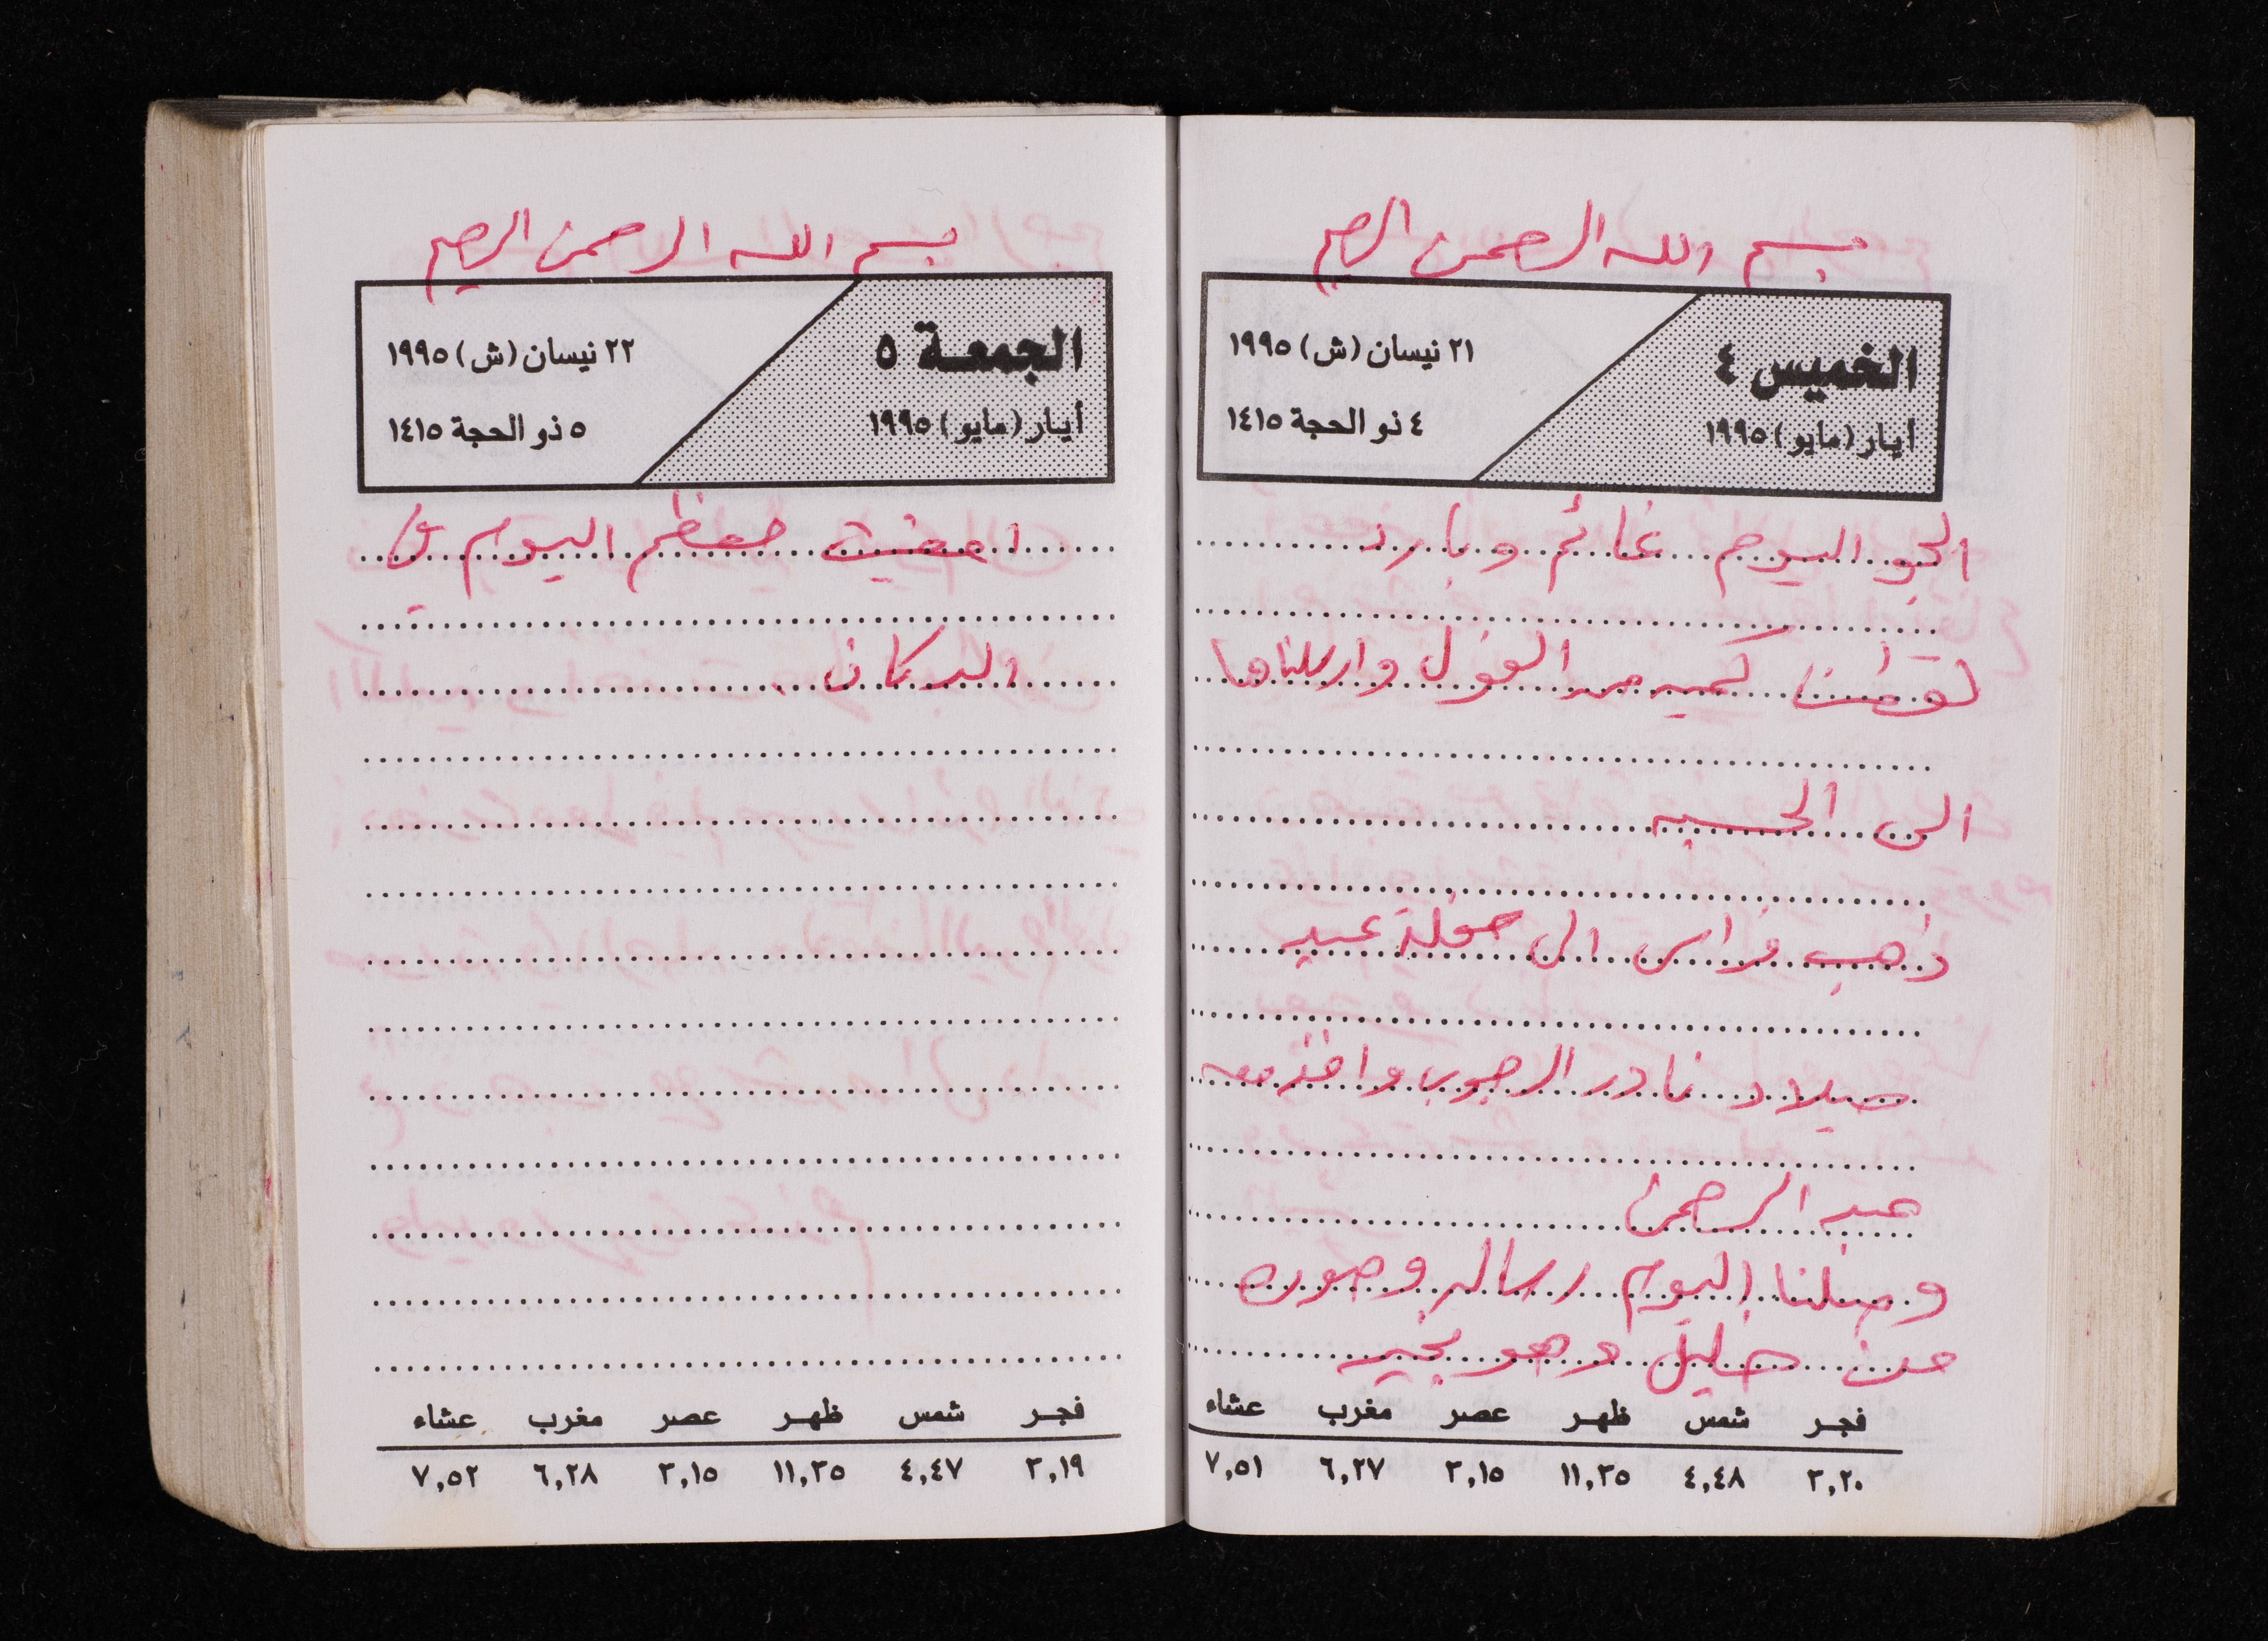 بسم الله الرحمن الرحيم
الخميس ٤
أيار (مايو) ١٩٩٥
٢١ نيسان (ش) ١٩٩٥
٤ ذو الحجة ١٤١٥
الجو اليوم غائم وبارد
لقطنا كميه من الفول وارسلناها
الى الحسبه
ذهب فراس الى حفلة عيد
ميلاد نادر الرجوب واخذ معه
عبد الرحمن
وصلنا اليوم رساله وصوره
من خليل وهو بخير
فجر شمس ظهر عصر مغرب عشاء
٣,٢٠ ٤,٤٨ ١١,٣٥ ٣,١٥ ٦,٢٧ ٧,٥١
بسم الله الرحمن الرحيم
الجمعة ٥
أيار (مايو) ١٩٩٥
٢٢ نيسان (ش) ١٩٩٥
٥ ذو الحجة ١٤١٥
امضيت معظم اليوم في
الدكان
فجر شمس ظهر عصر مغرب عشاء
٣,١٩ ٤,٤٧ ١١,٣٥ ٣,١٥ ٦,٢٨ ٧,٥٢